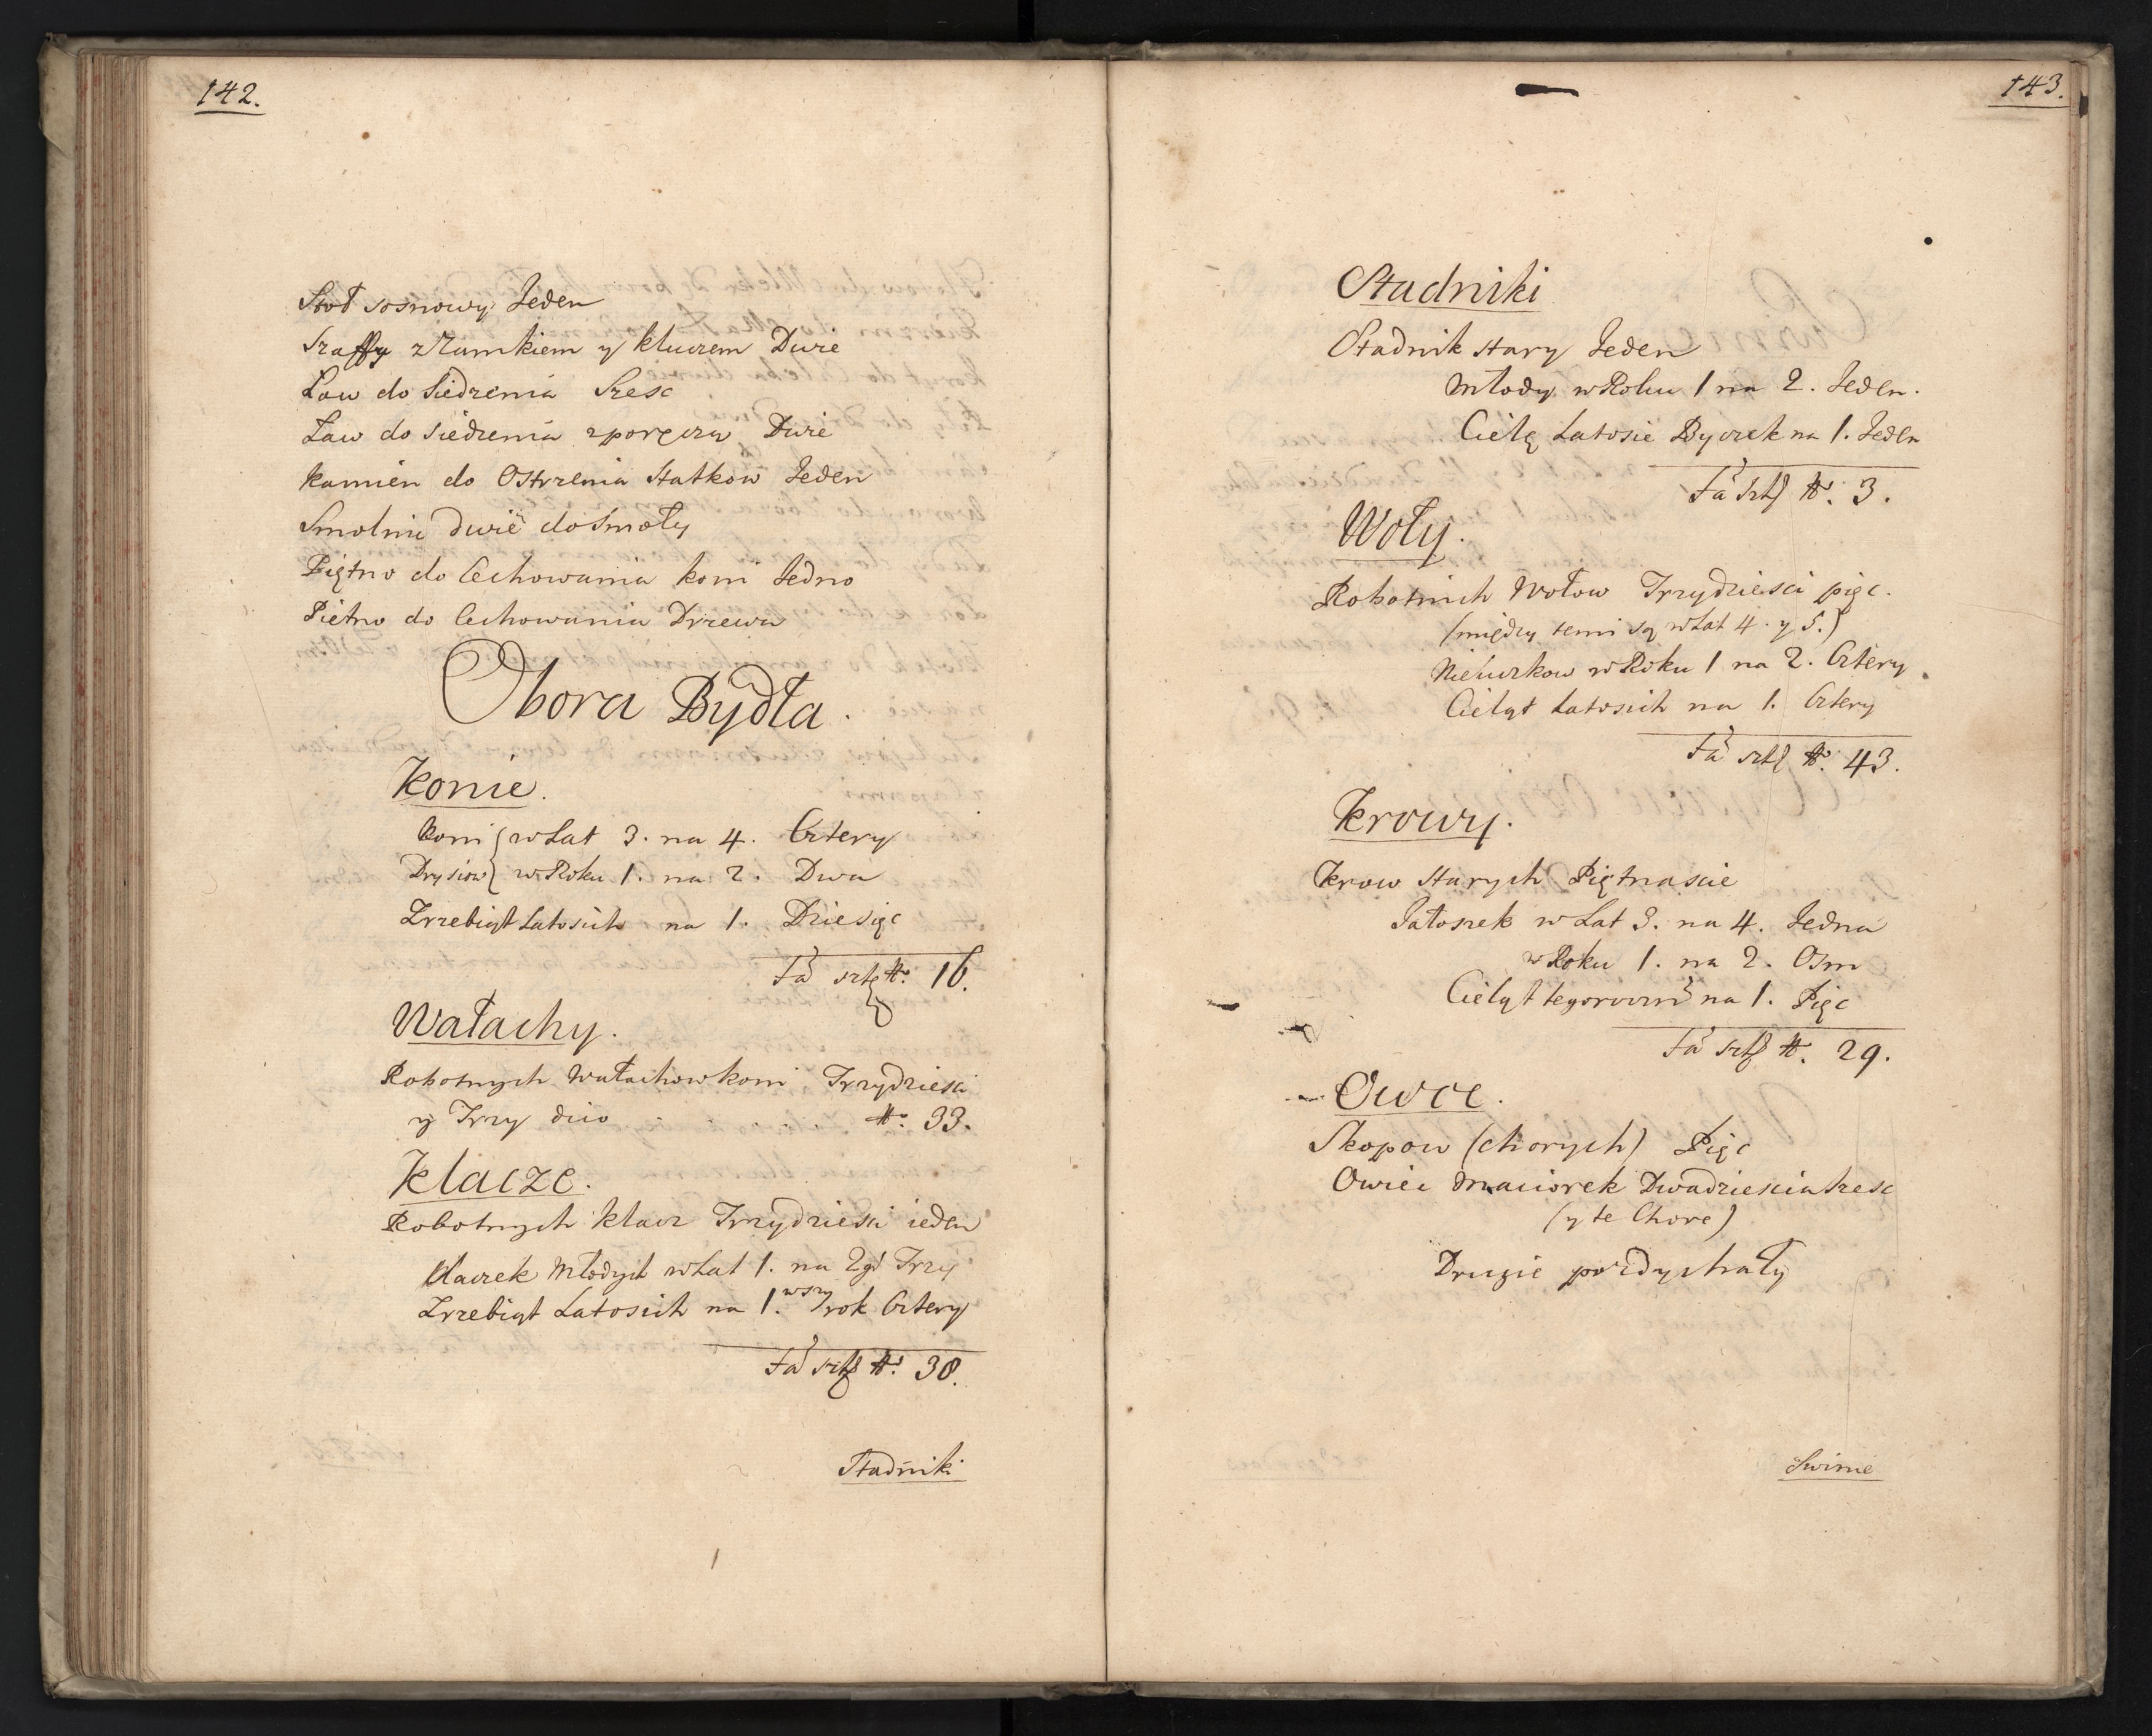 142.
Stoł sosnowy Jeden
Szaffy z Zamkiem y kluczem Dwie
Ław do Siedzenia Szesc
Ław do siedzenia zporęczą Dwie
kamien do Ostrzenia Statkow Jeden
Smolnie dwie do smoły
Piętno do Cechowania koni Jedno
Piętno do Cechowania Drzewa
Obora Bydła.
Konie.
koni w Lat 3. na 4. Cztery
Drysiow w Roku 1. na 2. Dwa
Zrzebiąt Latosich na 1. Dziesięc
Fa szt No. 16.
Wałachy.
Robotnych Wałachow koni Trzydziesci
y Trzy No. 33.
Klacze.
Robotnych klacz Trzydziesci ieden
klaczek Młodych w Lat 1. na 2gi Trzy
Zrzebiąt Latosich na 1.wszy rok Cztery
Fa szt No. 38.
Stadniki
143.
Stadniki
Stadnik stary Jeden
Młody w Roku 1 na 2. Jeden.
Cielę Latosie Byczek na 1. Jeden
Fa szt No. 3.
Woły.
Robotnich Wołow Trzydziesci pięc.
(między temi są w Lat 4. y 5.)
Nieiuczkow w Roku 1 na 2. Cztery.
Cieląt Latosich na 1. Cztery
Fa szt No. 43.
Krowy.
Krow starych Piętnascie
Jałoszek w Lat 3. na 4. Jedna
w Roku 1. na 2. Osm
Cieląt tegoroczn na 1. Pięc
Fa szt No. 29.
Owce.
Skopow (chorych) Pięc
Owiec Maciorek Dwadziescia szesc
(y te Chore)
Drugie pozdychały
Swinie